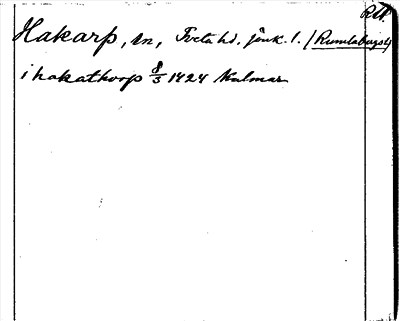 RA
Hakarp, sn, Tveta hd. Jönk. l. (Rumlaborgs l)
i hakathorp 8/3 1424 Kalmar